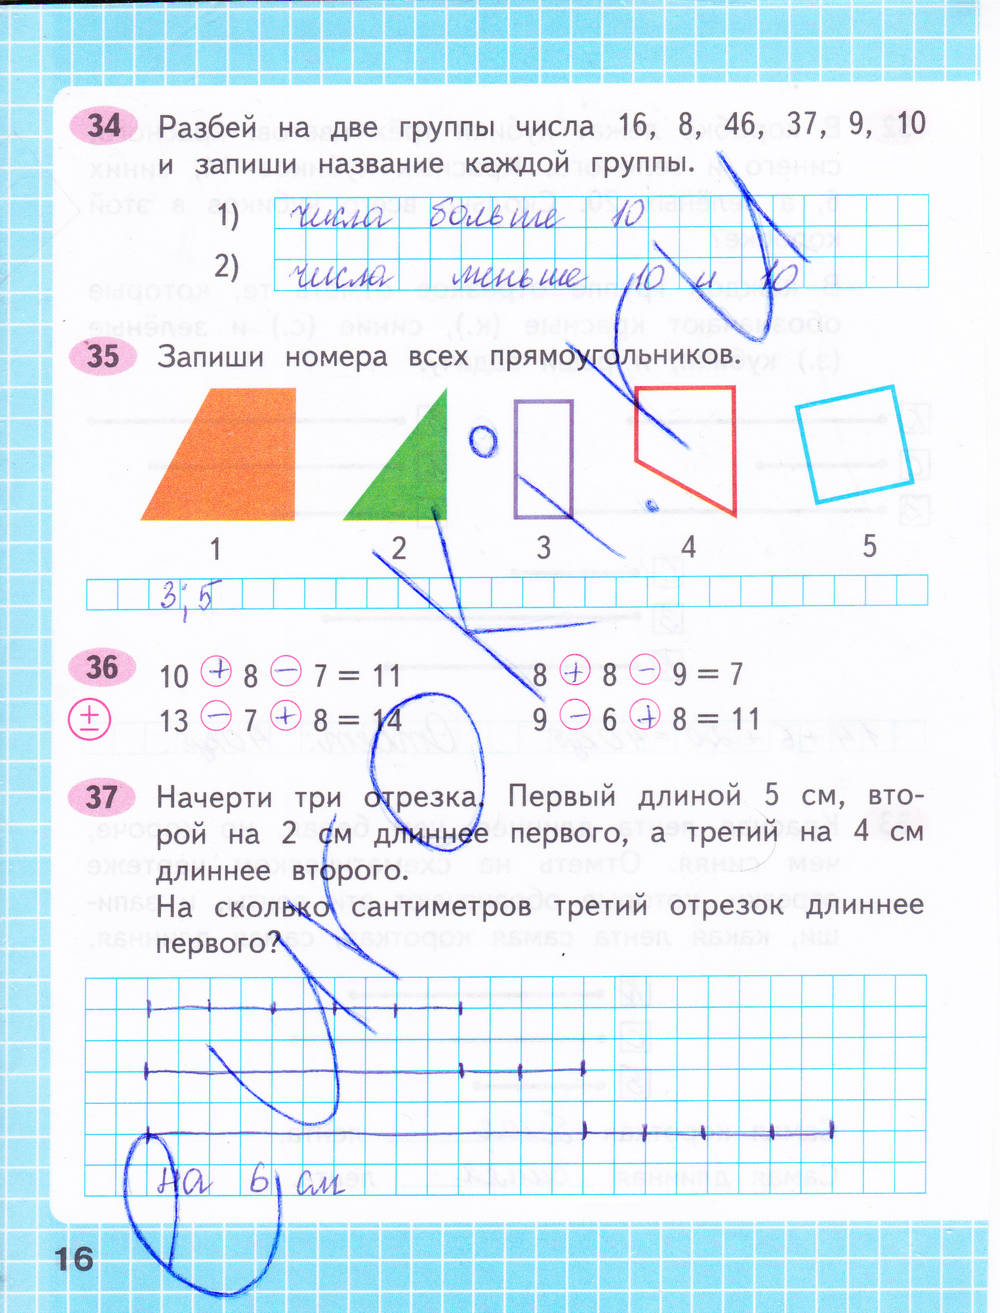 34 Разбей на две группы числа 16, 8, 46, 37, 9, 10
и запиши название каждой группы.
1) числа больше 10
2) числа меньше 10 и 10
35 Запиши номера всех прямоугольников.
1 2 3 4 5
3; 5
36 10 + 8 − 7 = 11 8 + 8 − 9 = 7
± 13 − 7 + 8 = 14 9 − 6 + 8 = 11
37 Начерти три отрезка. Первый длиной 5 см, вто-
рой на 2 см длиннее первого, а третий на 4 см
длиннее второго.
На сколько сантиметров третий отрезок длиннее
первого?
на 6 см
16